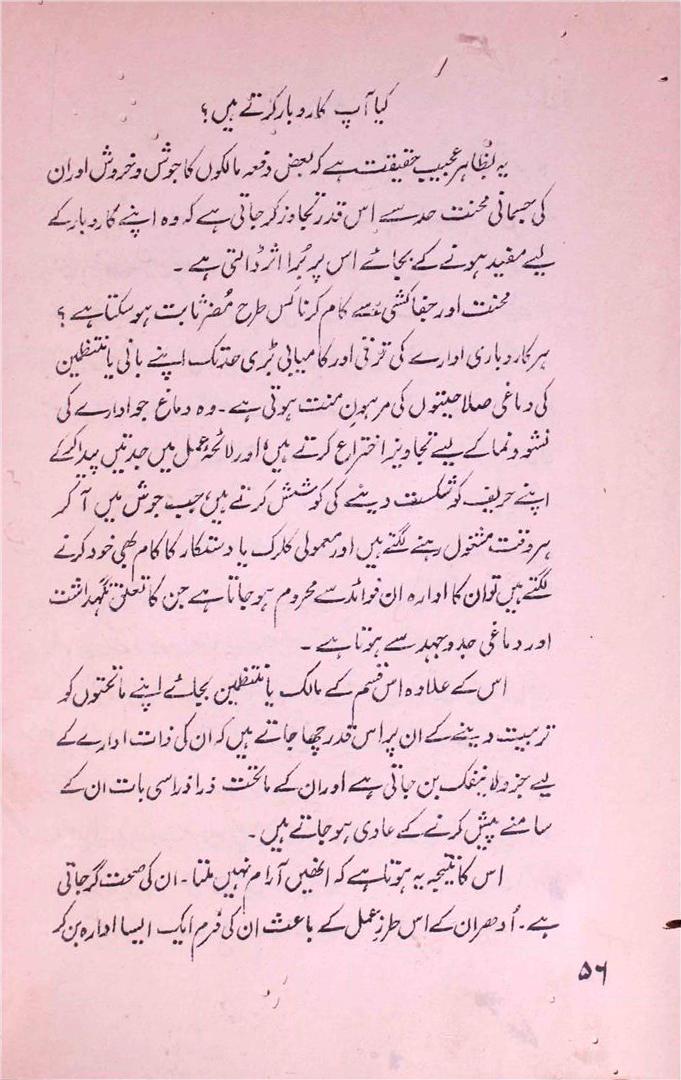 کیا آپ کاروبار کرتے ہیں ؟
یہ بظاہر عجیب حقیقت ہے کہ بعض دفعہ مالکوں کا جوش و خروش اور ان
کی جسمانی محنت حد سے اس قدر تجاوز کر جاتی ہے کہ وہ اپنے کاروبار کے
لیے مفید ہونے کے بجائے اس پر بُرا اثر ڈالتی ہے ۔
محنت اور جفاکشی سے کام کرنا کس طرح مُضر ثابت ہو سکتا ہے ؟
ہر کاروباری ادارے کی ترقی اور کامیابی بڑی حد تک اپنے بانی یا منتظمین
کی دماغی صلاحیتوں کی مرہونِ منت ہوتی ہے ۔ وہ دماغ جو ادارے کی
نشوونما کے لیے تجاویز اختراع کرتے ہیں اور لائحۂ عمل میں جدتیں پیدا کر کے
اپنے حریف کو شکست دینے کی کوشش کرتے ہیں، جب جوش میں آ کر
ہر وقت مشغول رہنے لگتے ہیں اور معمولی کلرک یا دستکار کا کام بھی خود کرنے
لگتے ہیں تو ان کا ادارہ ان فوائد سے محروم ہو جاتا ہے جن کا تعلق نگہداشت
اور دماغی جدوجہد سے ہوتا ہے ۔
اس کے علاوہ اس قسم کے مالک یا منتظمین بجائے اپنے ماتحتوں کو
تربیت دینے کے ان پر اس قدر چھا جاتے ہیں کہ ان کی ذات ادارے کے
لیے جزو لاینفک بن جاتی ہے اور ان کے ماتحت ذرا ذرا سی بات ان کے
سامنے پیش کرنے کے عادی ہو جاتے ہیں ۔
اس کا نتیجہ یہ ہوتا ہے کہ انھیں آرام نہیں ملتا ۔ ان کی صحت گر جاتی
ہے ۔ اُدھر ان کے اس طرزِ عمل کے باعث ان کی فرم ایک ایسا ادارہ بن کر
۵۶